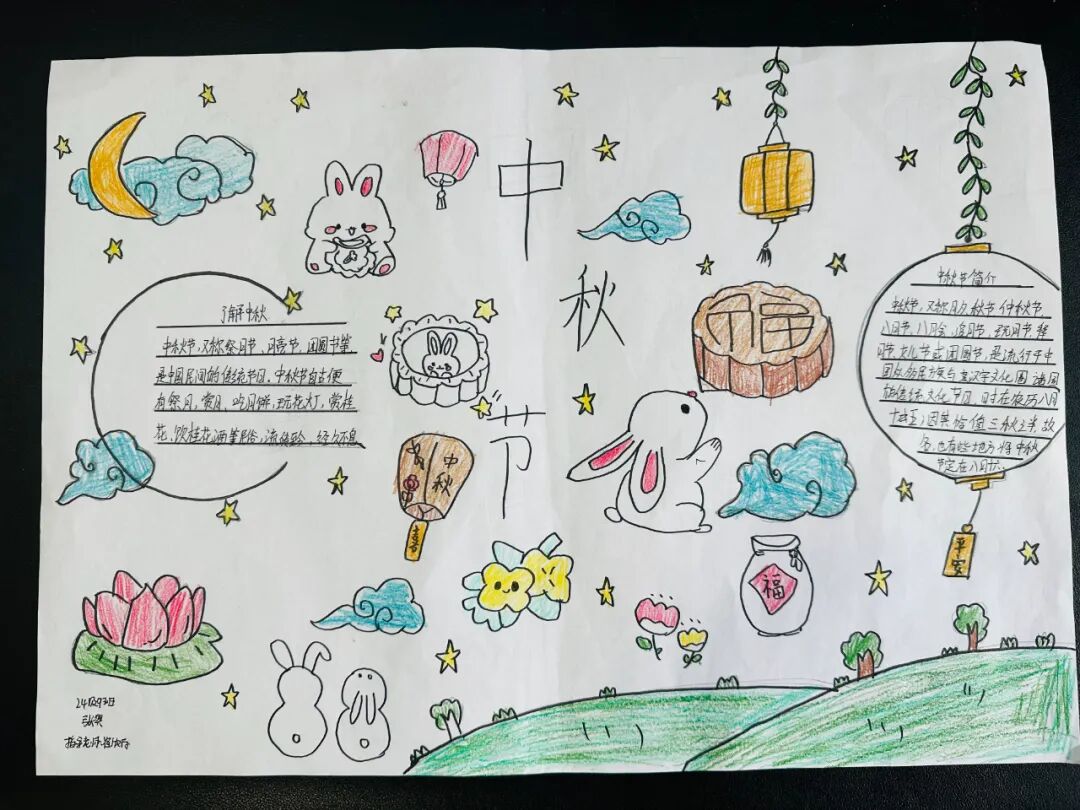 中
秋
节
了解中秋
中秋节,又称祭月节、月亮节、团圆节等
是中国民间的传统节日。中秋节自古便
有祭月、赏月、吃月饼、玩花灯、赏桂
花、饮桂花酒等民俗,流传至今,经久不息
中秋
喜
福
福
中秋节简介
中秋节,又称月夕、秋节、仲秋节
八月节、八月会、追月节、玩月节、拜
月节、女儿节或团圆节,是流行于中
国众多民族与汉字文化圈诸国
的传统文化节日,时在农历八月
十五;因其恰值三秋之半,故
名,也有些地方将中秋
节定在八月十六.
平安